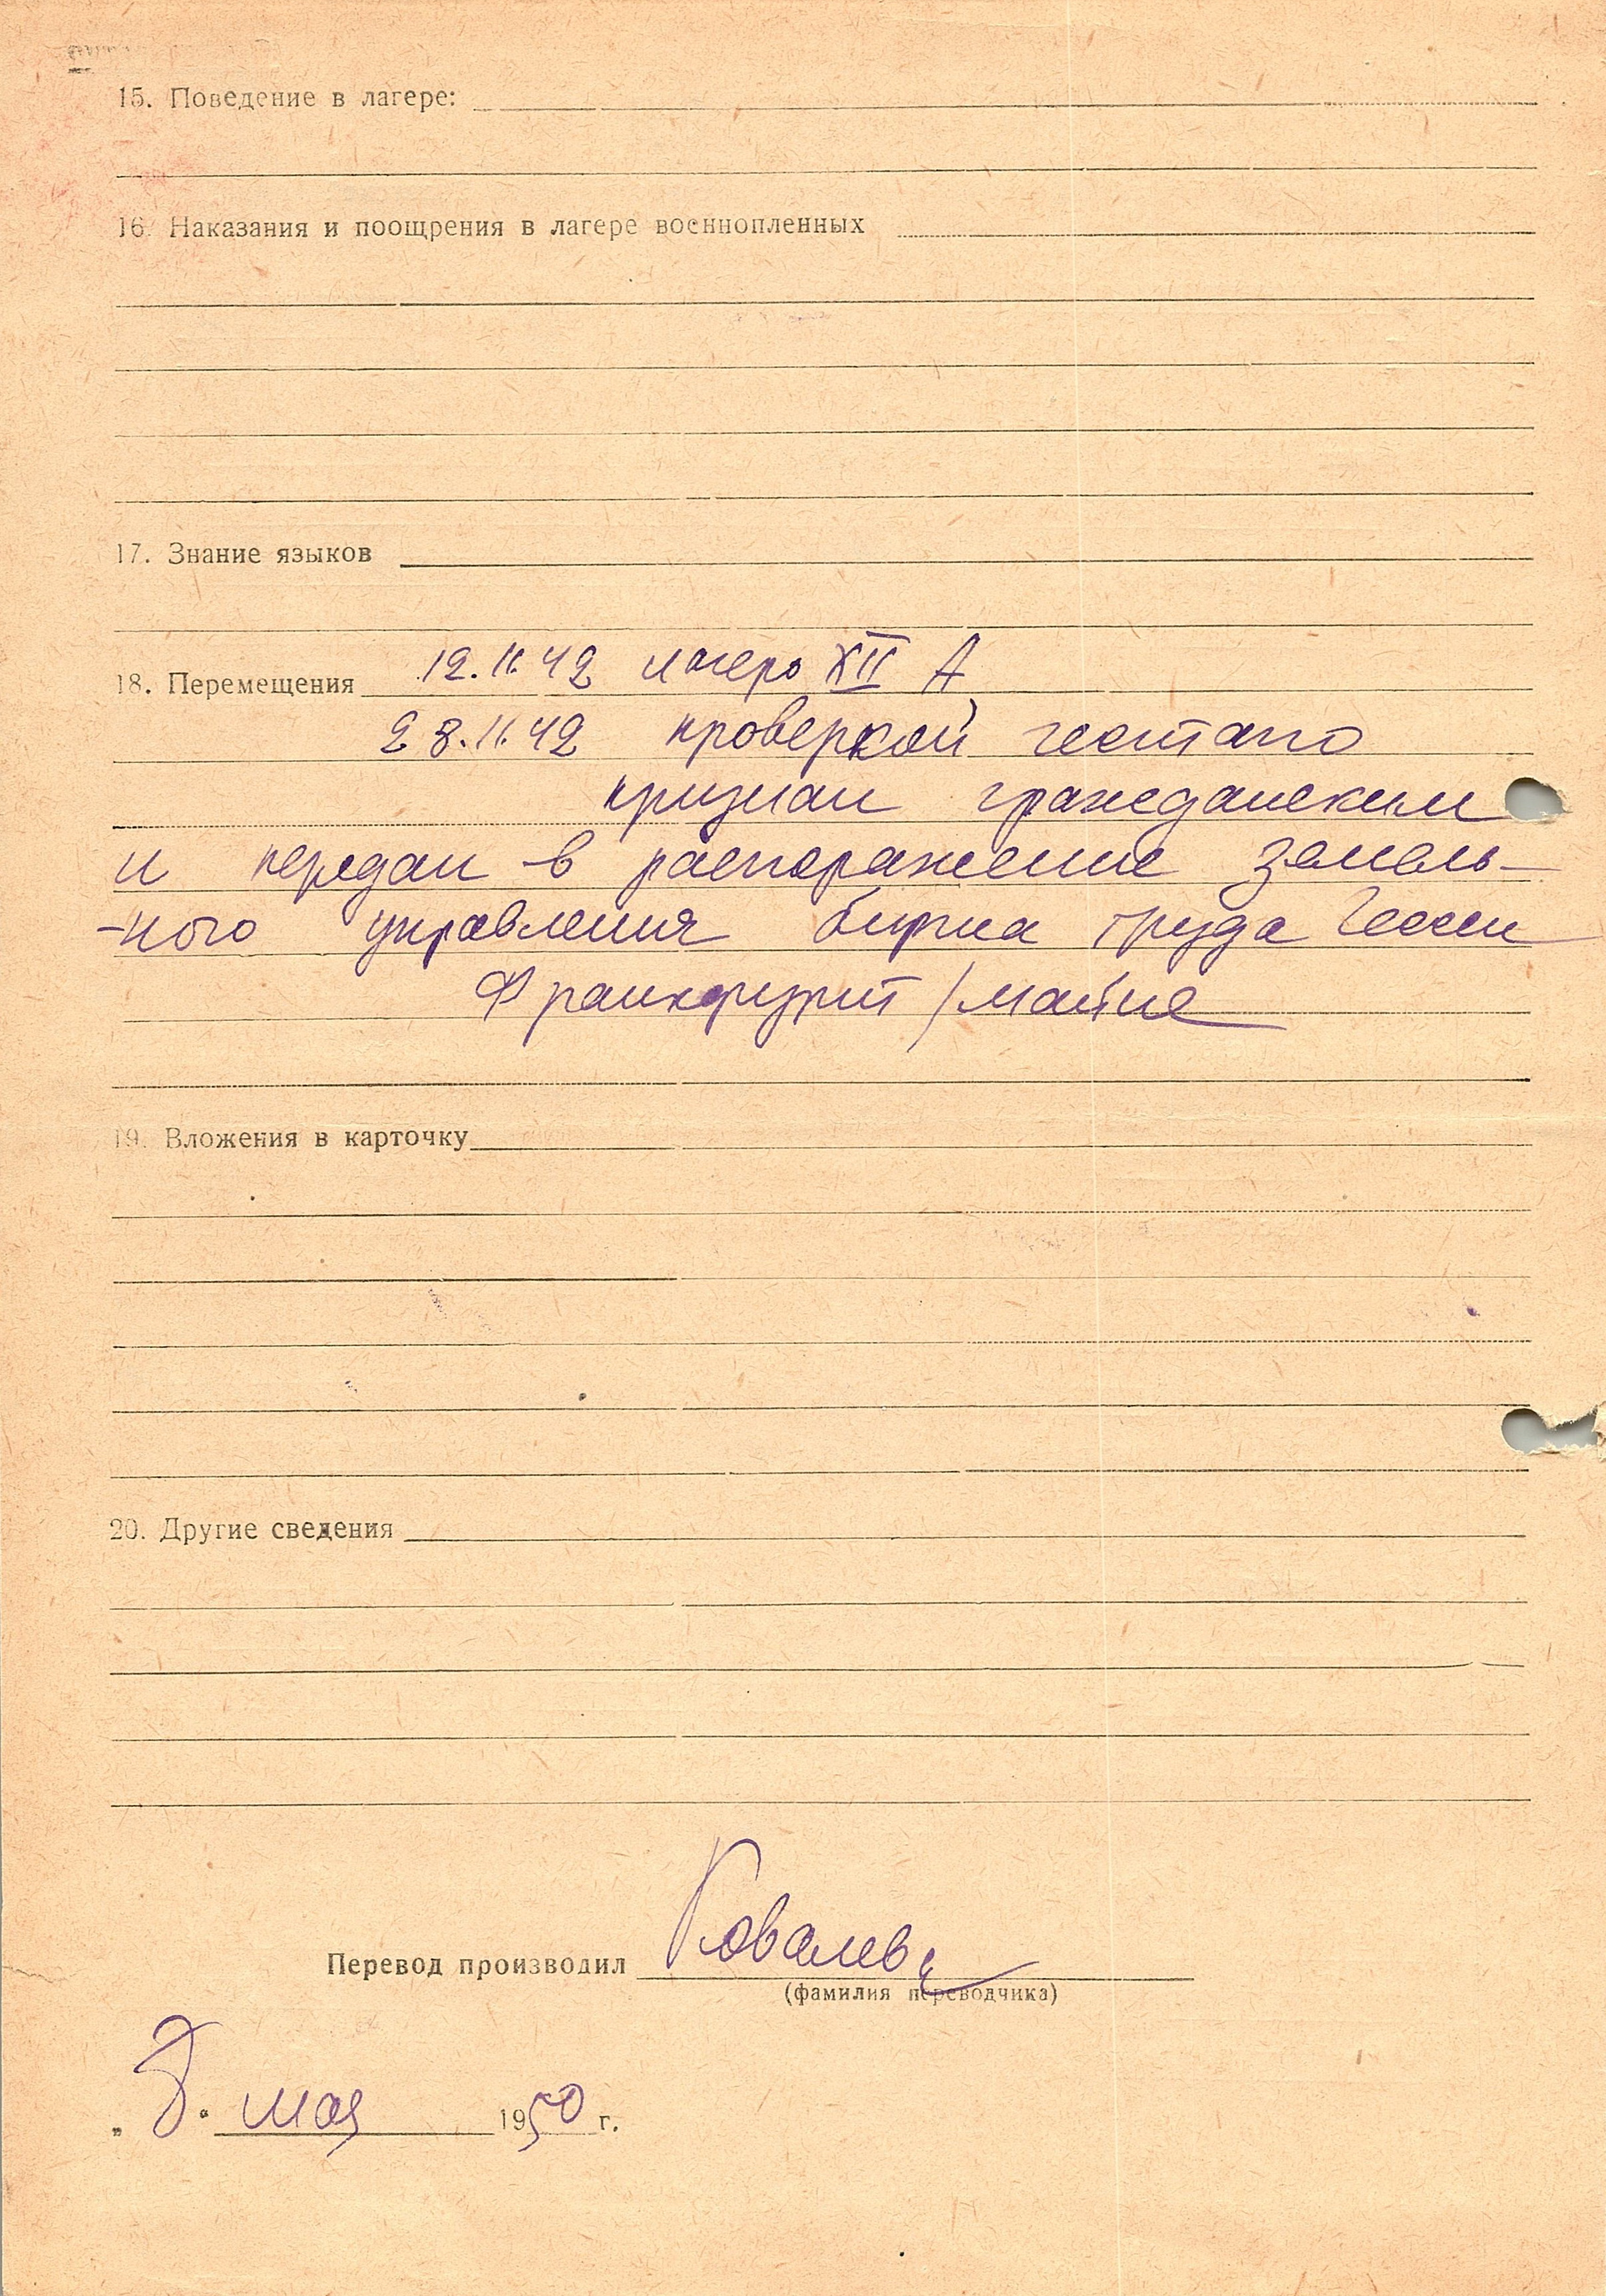 15. Поведение в лагере:
16. Наказания и поощрения в лагере военнопленных
17. Знание языков
18. Перемещения 12.11.42 лагерь XII А
28.11.42 проверкой гестапо
признан гражданским
и передан в распоряжение земель-
-ного управления биржа труда Гессен
Франкфурт/майне
19. Вложения в карточку
20. Другие сведения
Перевод производил Ковалев
(фамилия переводчика)
„8." мая 1950 г.